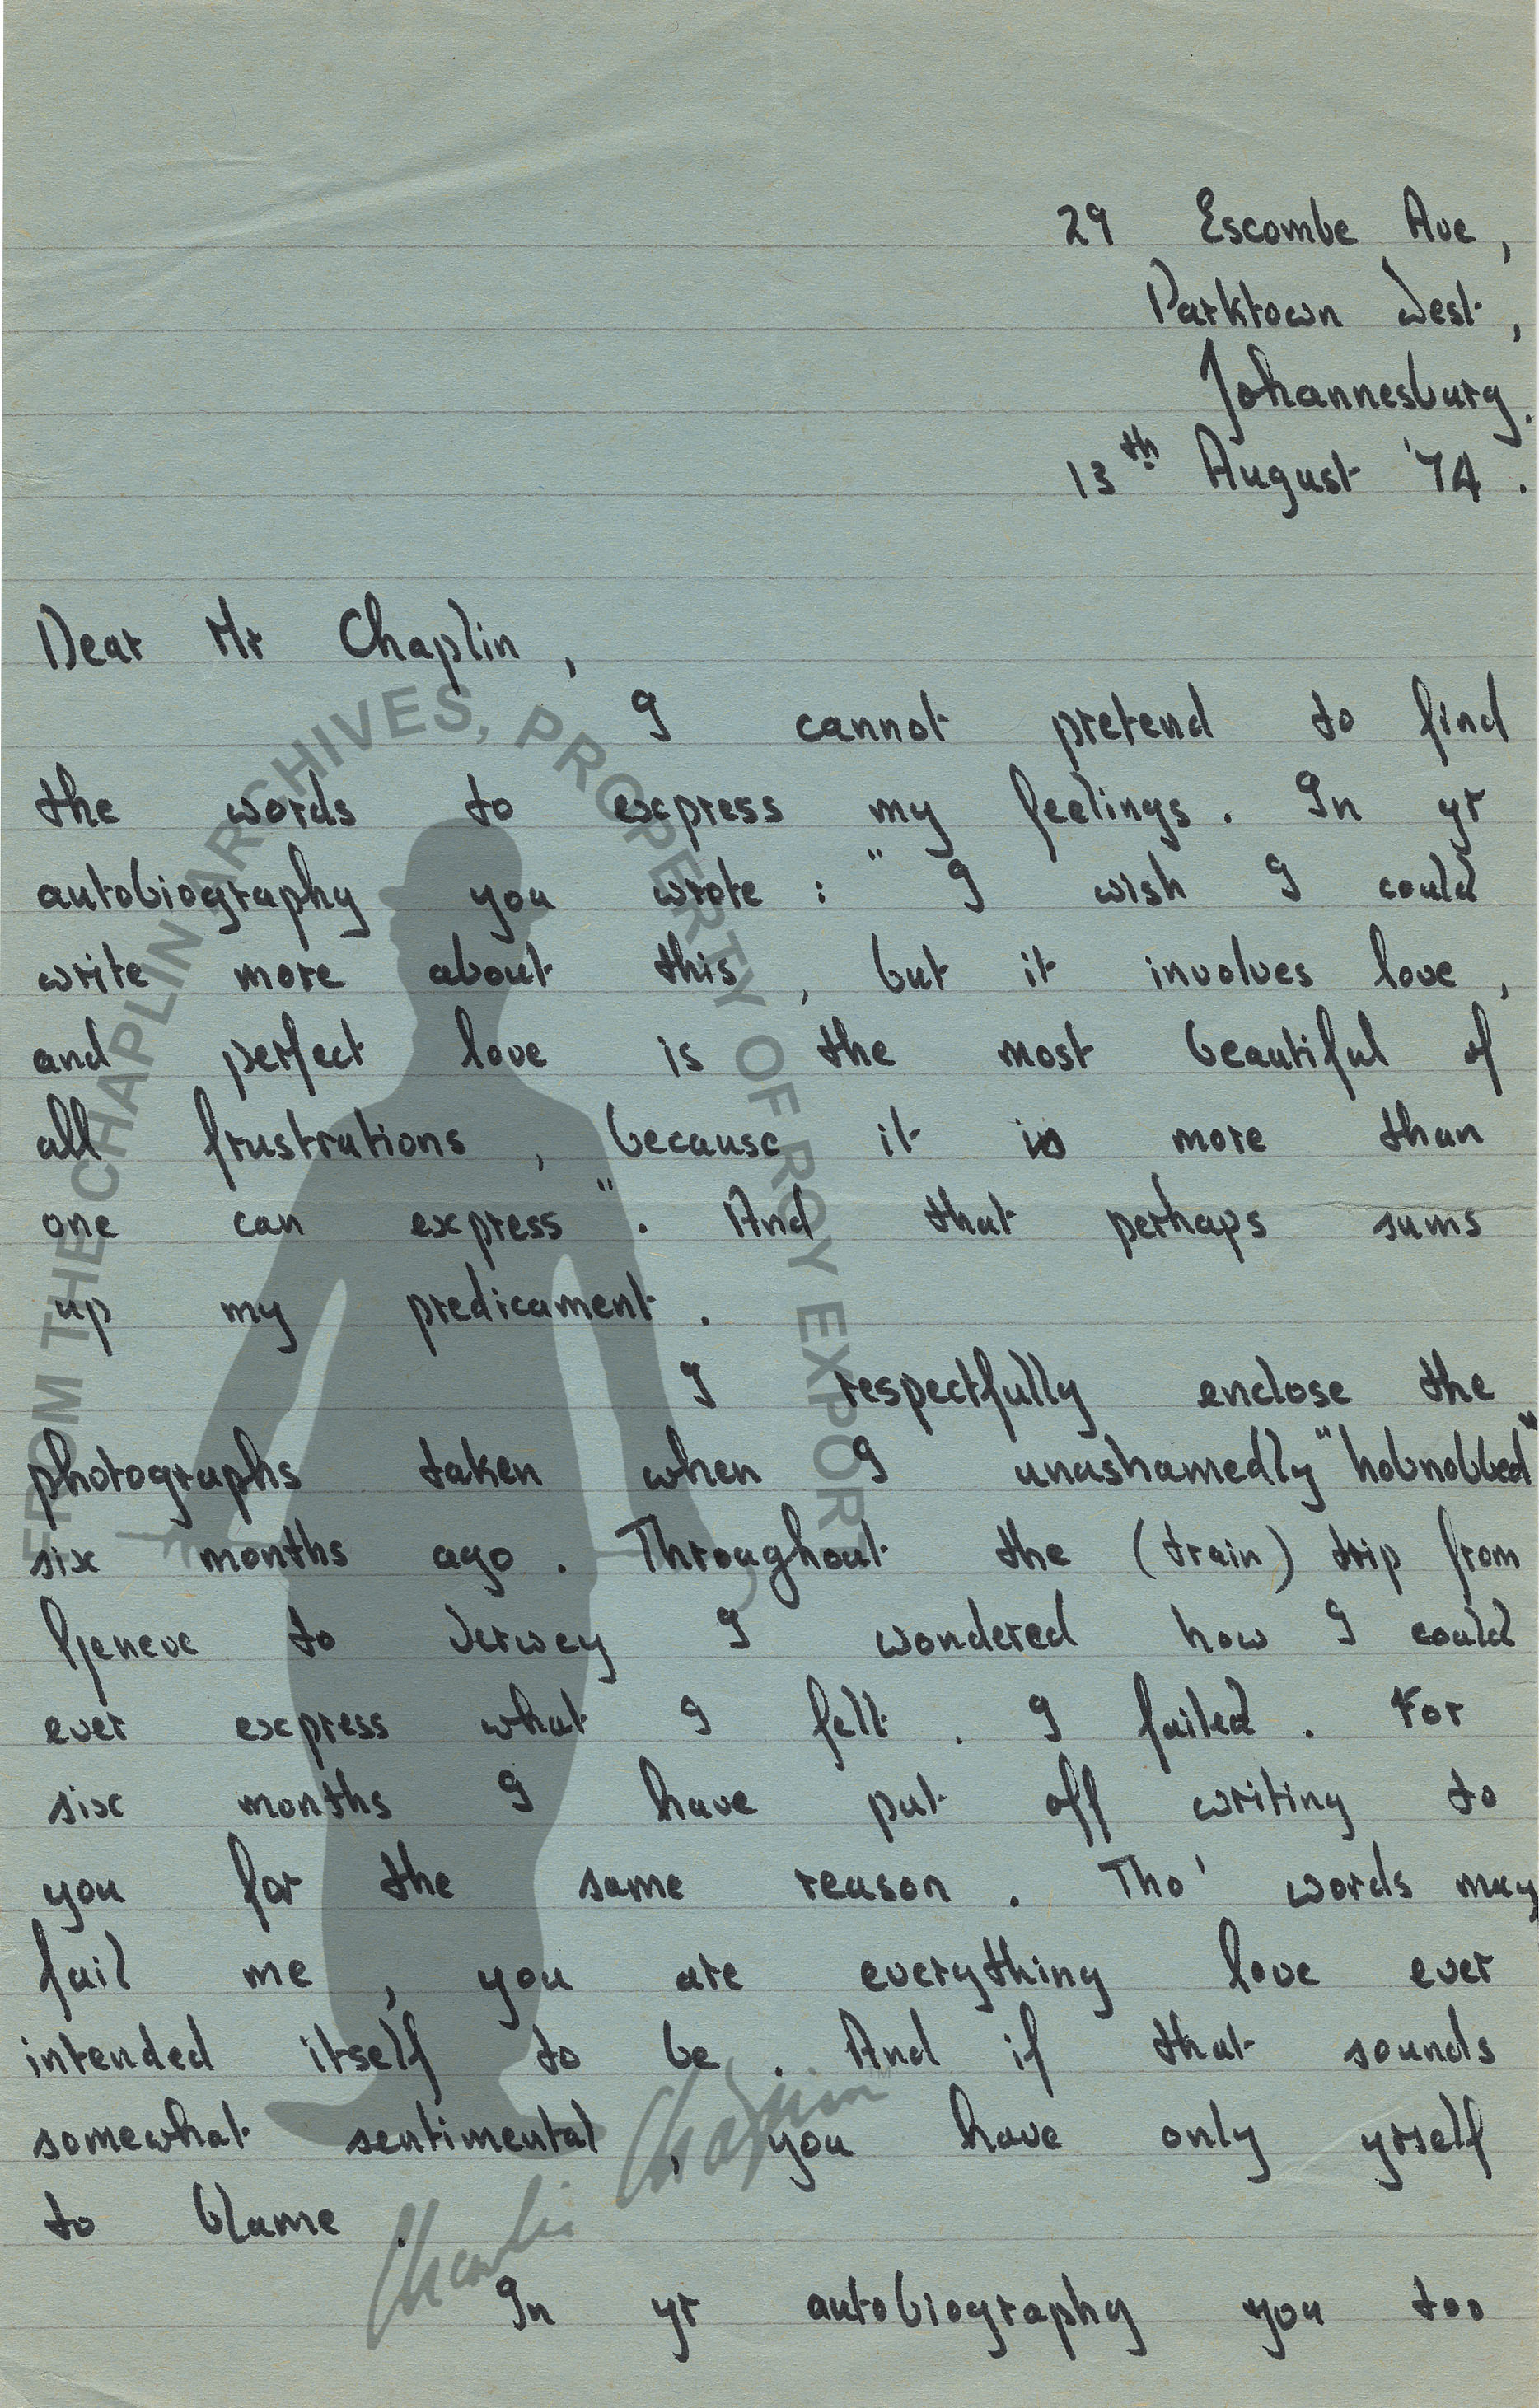 29 Escombe Ave,
Parktown West,
Johannesburg.
13th August '74.
Dear Mr Chaplin,
I cannot pretend to find
the words to express my feelings. In yr
autobiography you wrote: "I wish I could
write more about this, but it involves love,
and perfect love is the most beautiful of
all frustrations, because it is more than
one can express". And that perhaps sums
up my predicament.
I respectfully enclose the
photographs taken when I unashamedly "hobnobbed"
six months ago. Throughout the (train) trip from
Geneve to I wondered how I could
ever express what I felt. I failed. For
six months I have put off writing to
you for the same reason. Tho' words may
fail me, you are everything love ever
intended itself to be. And if that sounds
somewhat sentimental, you have only yrself
to blame.
In yr autobiography you too
FROM THE CHAPLIN ARCHIVES, PROPERTY OF ROY EXPORT
Charlie Chaplin